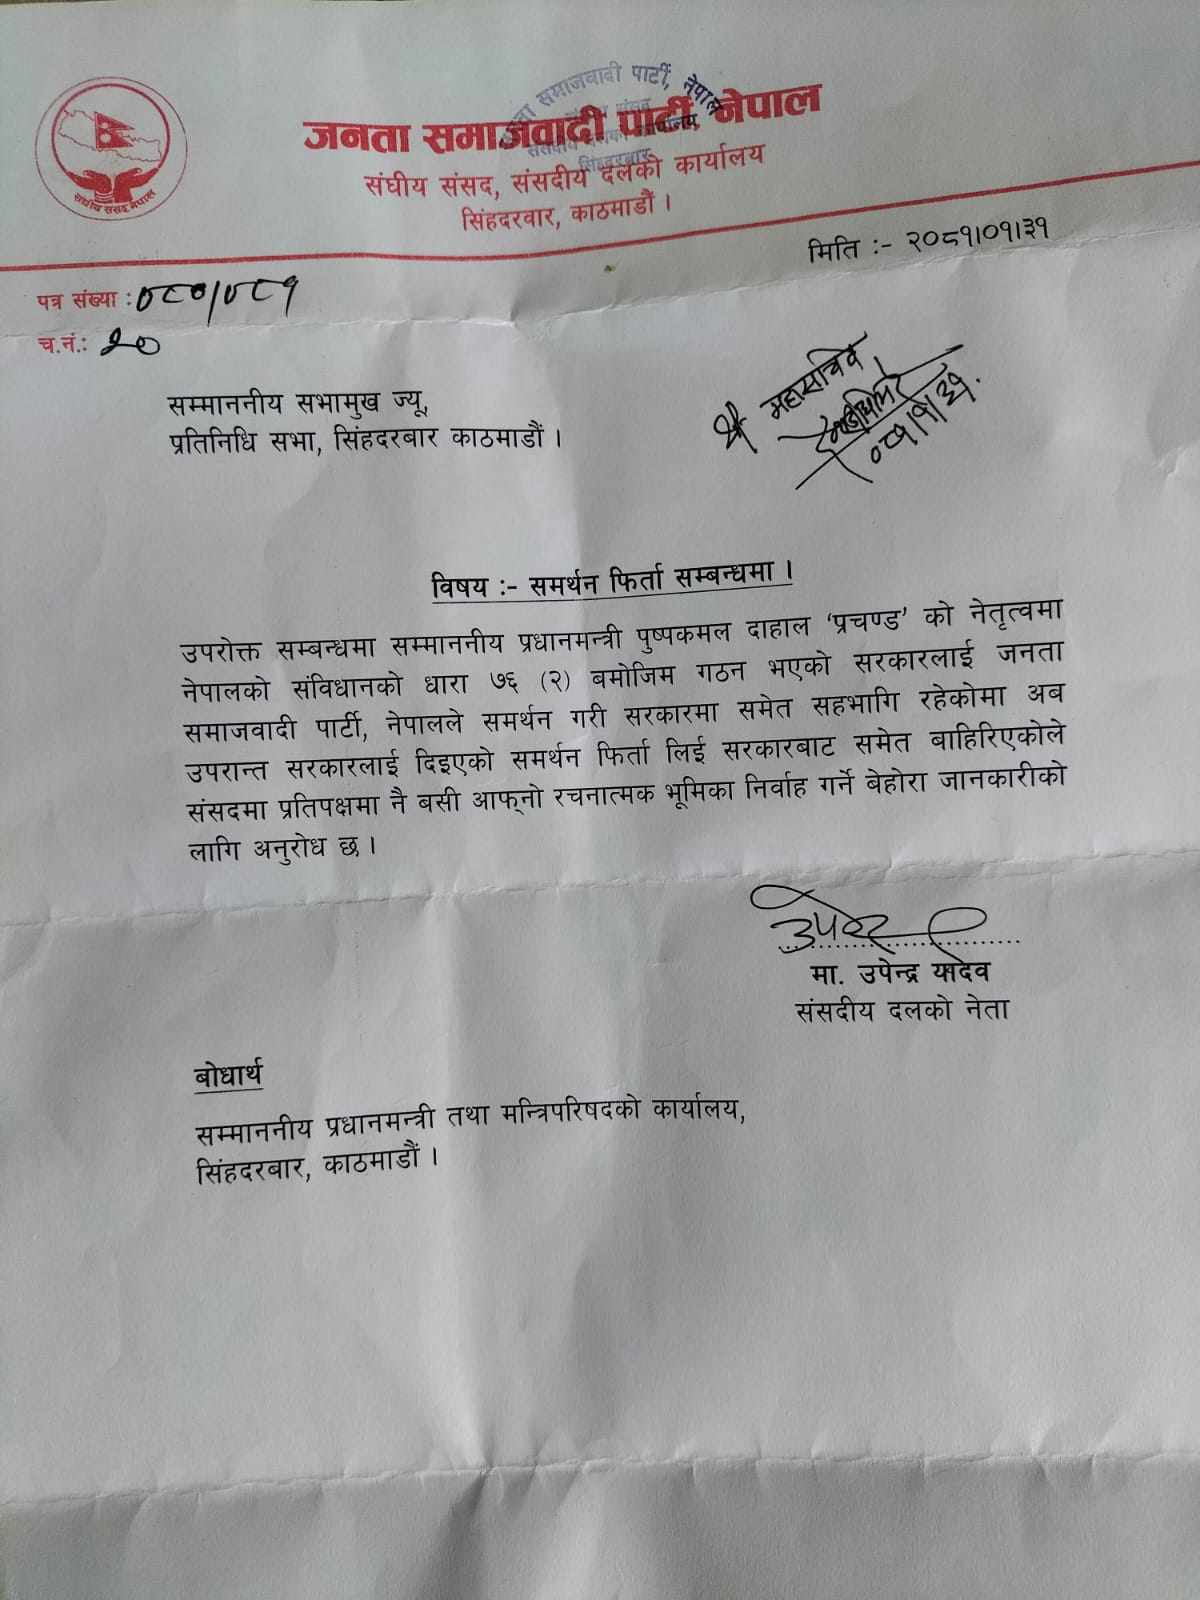 जनता समाजवादी पार्टी, नेपाल
जनता समाजवादी पार्टी, नेपाल
संघीय संसद
संसदीय दलको कार्यालय
सिंहदरबार
संघीय संसद, संसदीय दलको कार्यालय
सिंहदरवार, काठमाडौं ।
संघीय संसद नेपाल
मिति :- २०८१।०१।३१
पत्र संख्या : ०८०/०८१
च.नं.: २०
श्री महासचिव
०८१।१।३१.
सम्माननीय सभामुख ज्यू,
प्रतिनिधि सभा, सिंहदरबार काठमाडौं ।
विषय :- समर्थन फिर्ता सम्बन्धमा ।
उपरोक्त सम्बन्धमा सम्माननीय प्रधानमन्त्री पुष्पकमल दाहाल ‘प्रचण्ड’ को नेतृत्वमा
नेपालको संविधानको धारा ७६ (२) बमोजिम गठन भएको सरकारलाई जनता
समाजवादी पार्टी, नेपालले समर्थन गरी सरकारमा समेत सहभागि रहेकोमा अब
उपरान्त सरकारलाई दिइएको समर्थन फिर्ता लिई सरकारबाट समेत बाहिरिएकोले
संसदमा प्रतिपक्षमा नै बसी आफ्‌नो रचनात्मक भूमिका निर्वाह गर्ने बेहोरा जानकारीको
लागि अनुरोध छ ।
मा. उपेन्द्र यादेव
संसदीय दलको नेता
बोधार्थ
सम्माननीय प्रधानमन्त्री तथा मन्त्रिपरिषदको कार्यालय,
सिंहदरबार, काठमाडौं ।